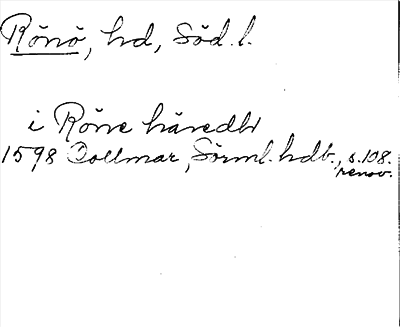 Rönö, hd, Söd. l.
i Röne häredh
1598 Collmar, Sörml. hdb., s. 108.
renov.